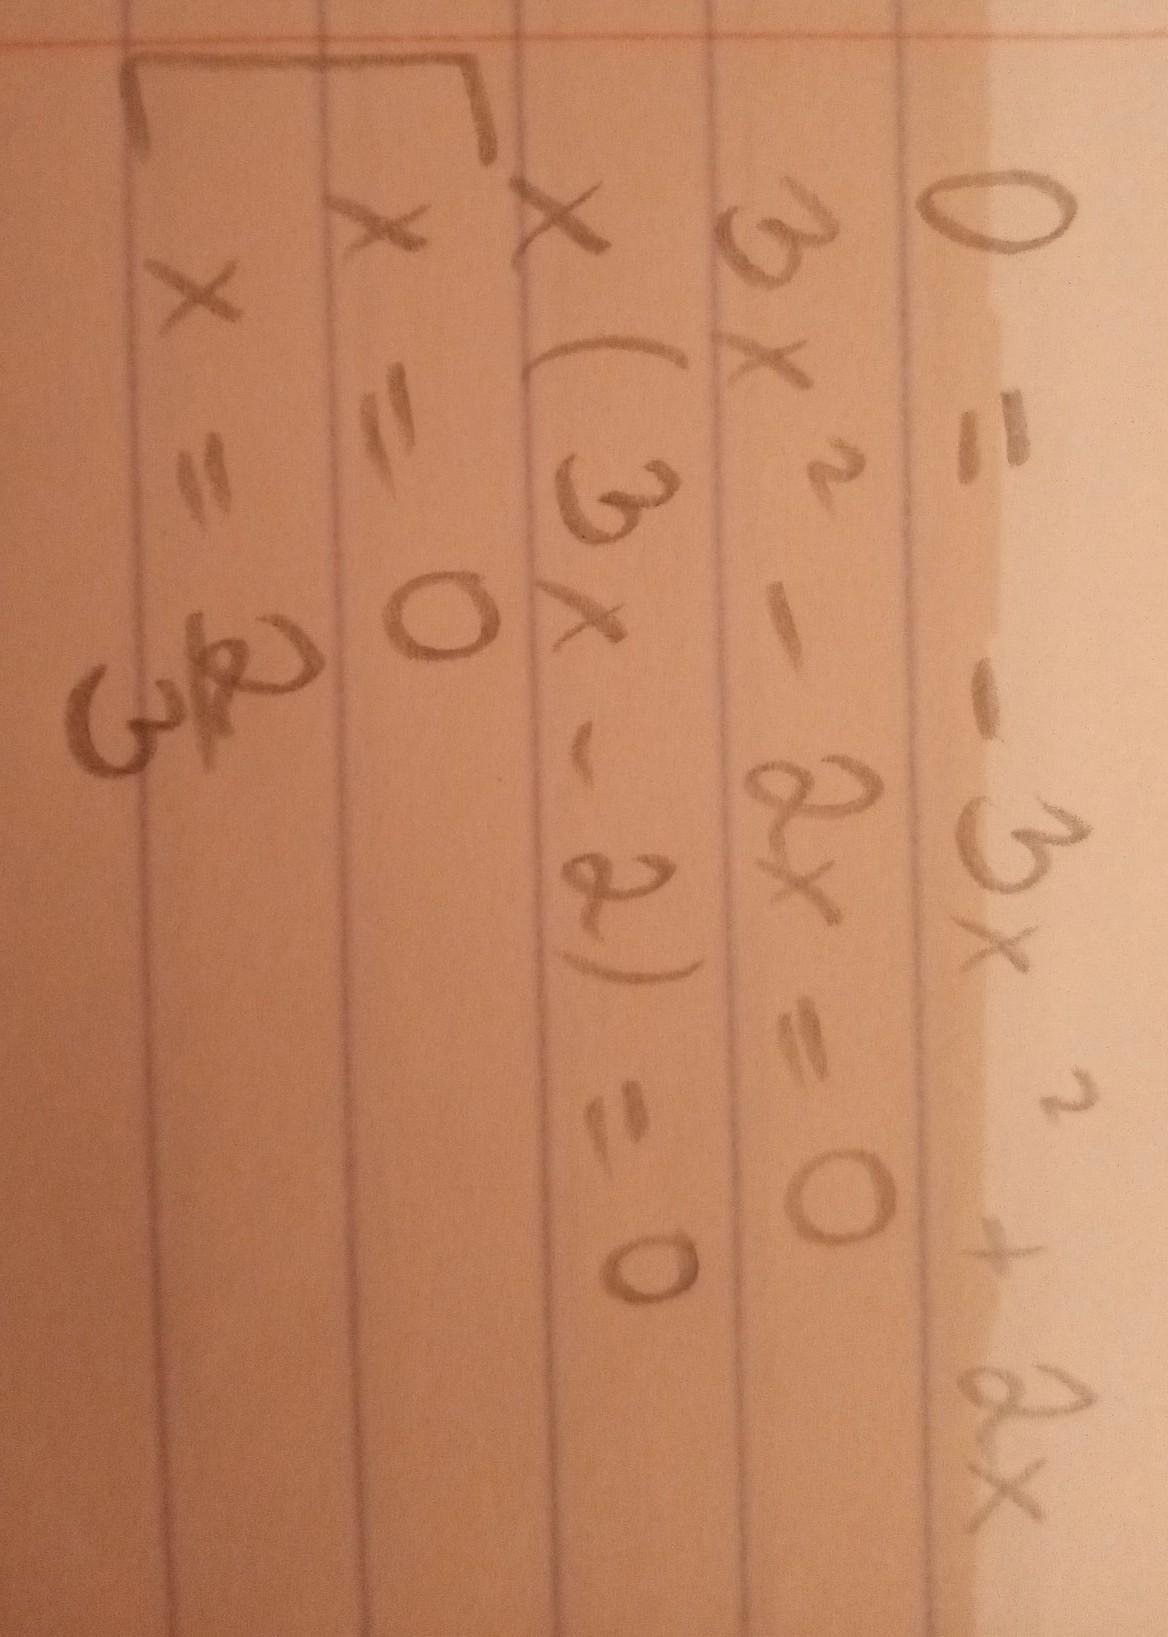 0 = - 3x² + 2x
3x² - 2x = 0
x(3x - 2) = 0
[ x = 0
x = 2/3